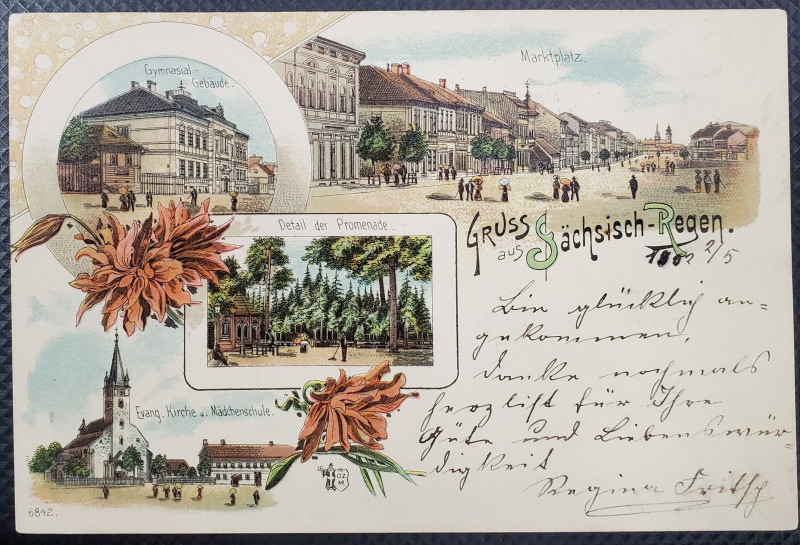 Gymnasial-
Gebäude.
Marktplatz.
Gruss
aus Sächsisch-Regen.
2/5
Detail der Promenade.
Bin glücklich an=
gekommen,
danke nochmals
herzlich für Ihre
Güte und Liebenswür-
digkeit
Regina Fritsch
Evang. Kirche u. Mädchenschule.
6842.